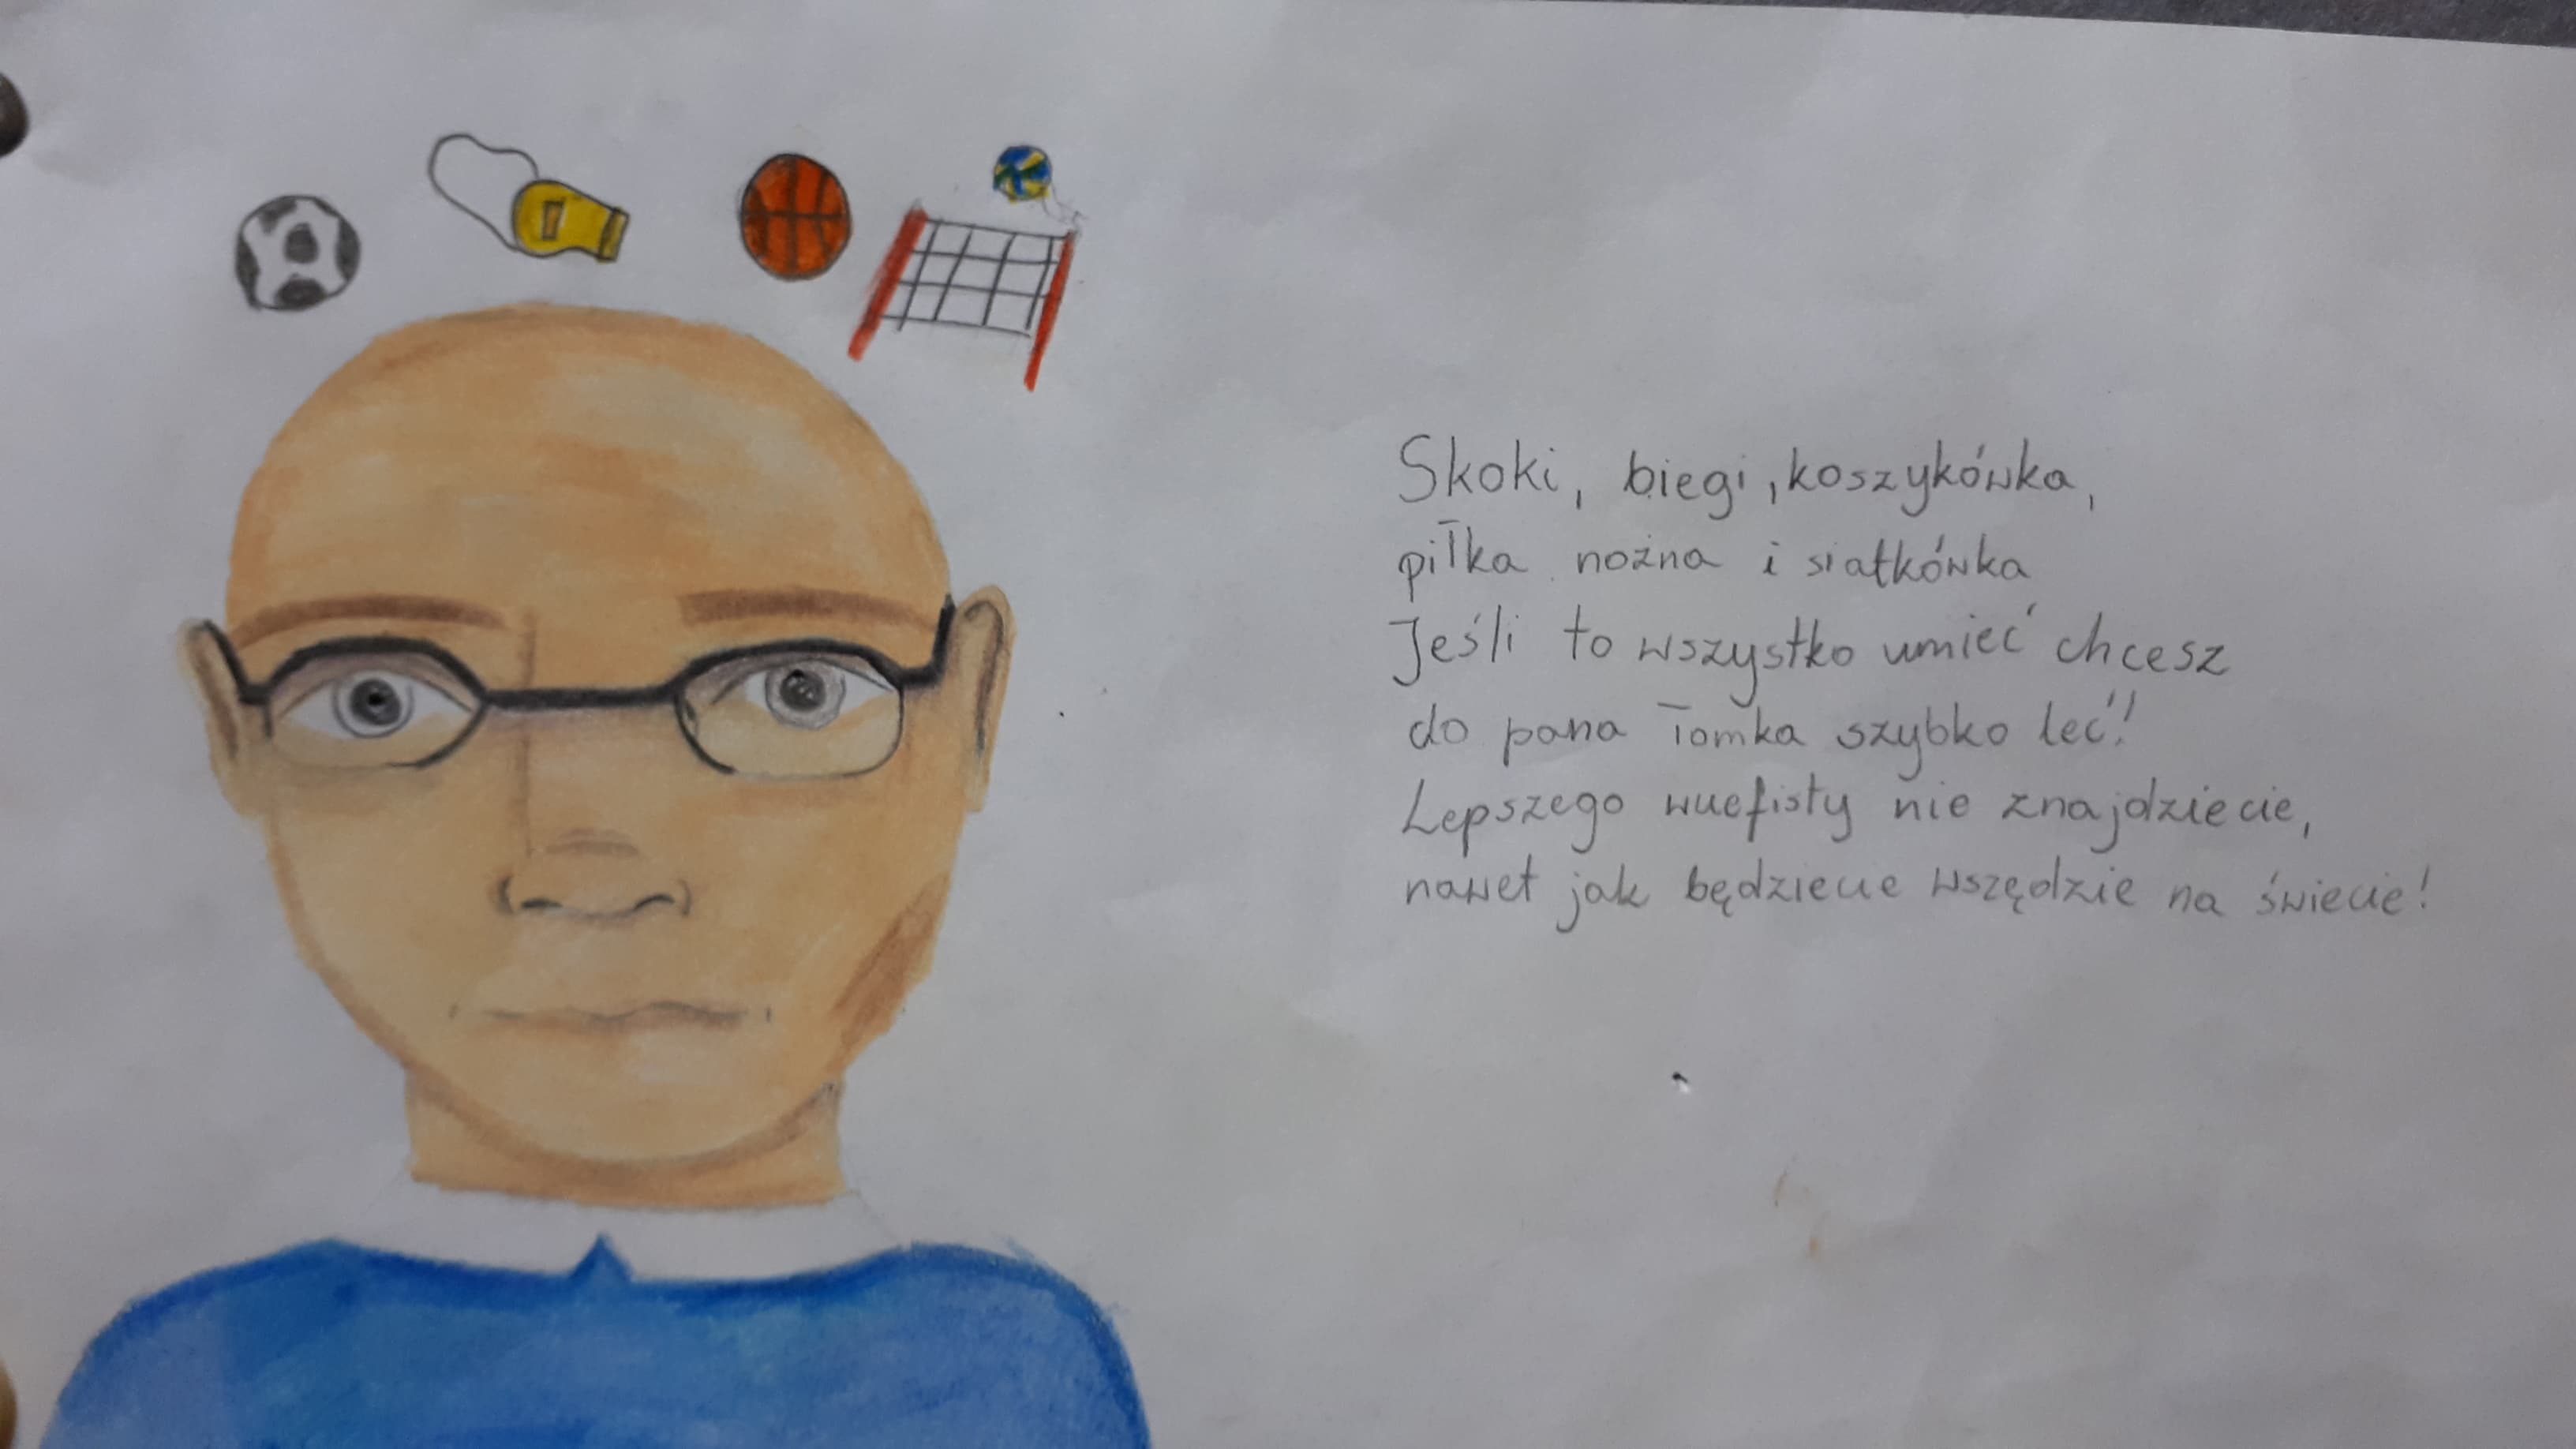 Skoki, biegi, koszykówka,
piłka nożna i siatkówka
Jeśli to wszystko umieć chcesz
do pana Tomka szybko leć!
Lepszego wuefisty nie znajdziecie,
nawet jak będziecie wszędzie na świecie!